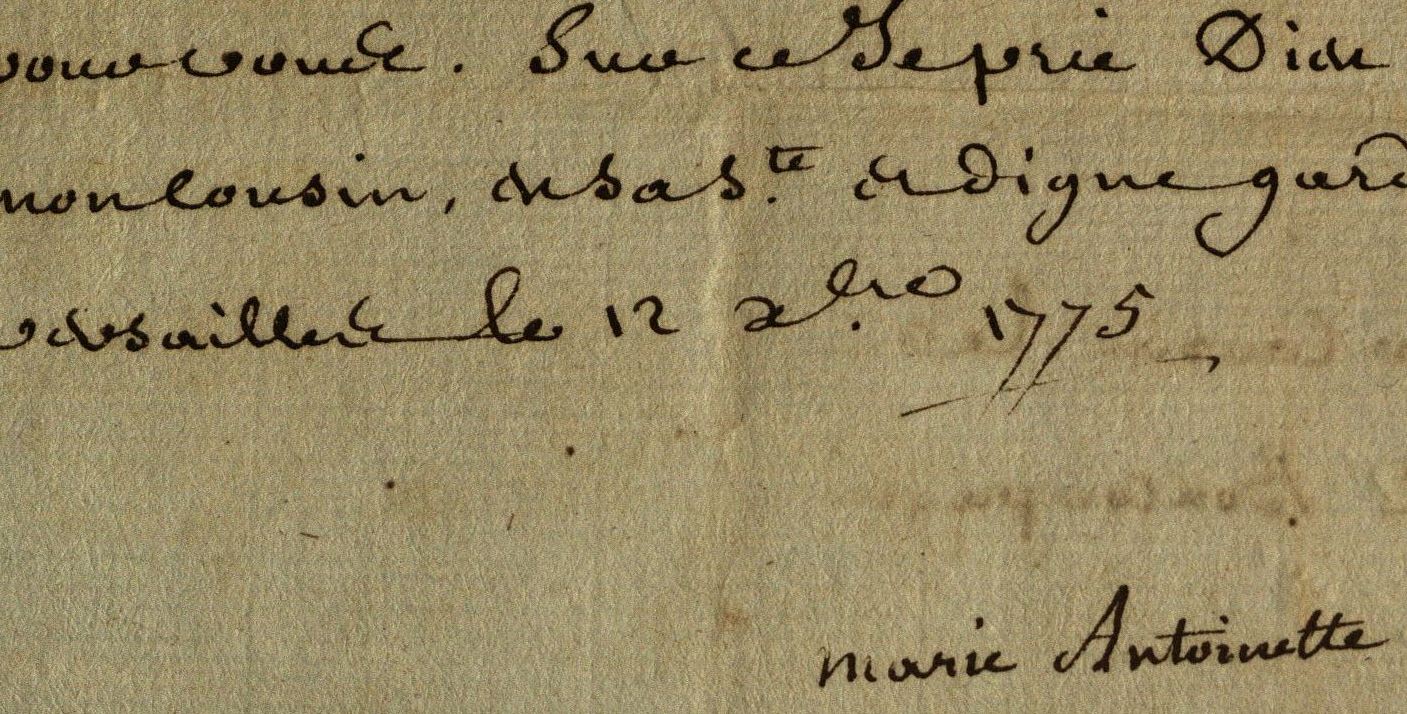 vous voue. Sur ce Je prie Dieu
mon Cousin, de sa s.te et digne gard
versailles le 12 x.bre 1775
marie Antoinette